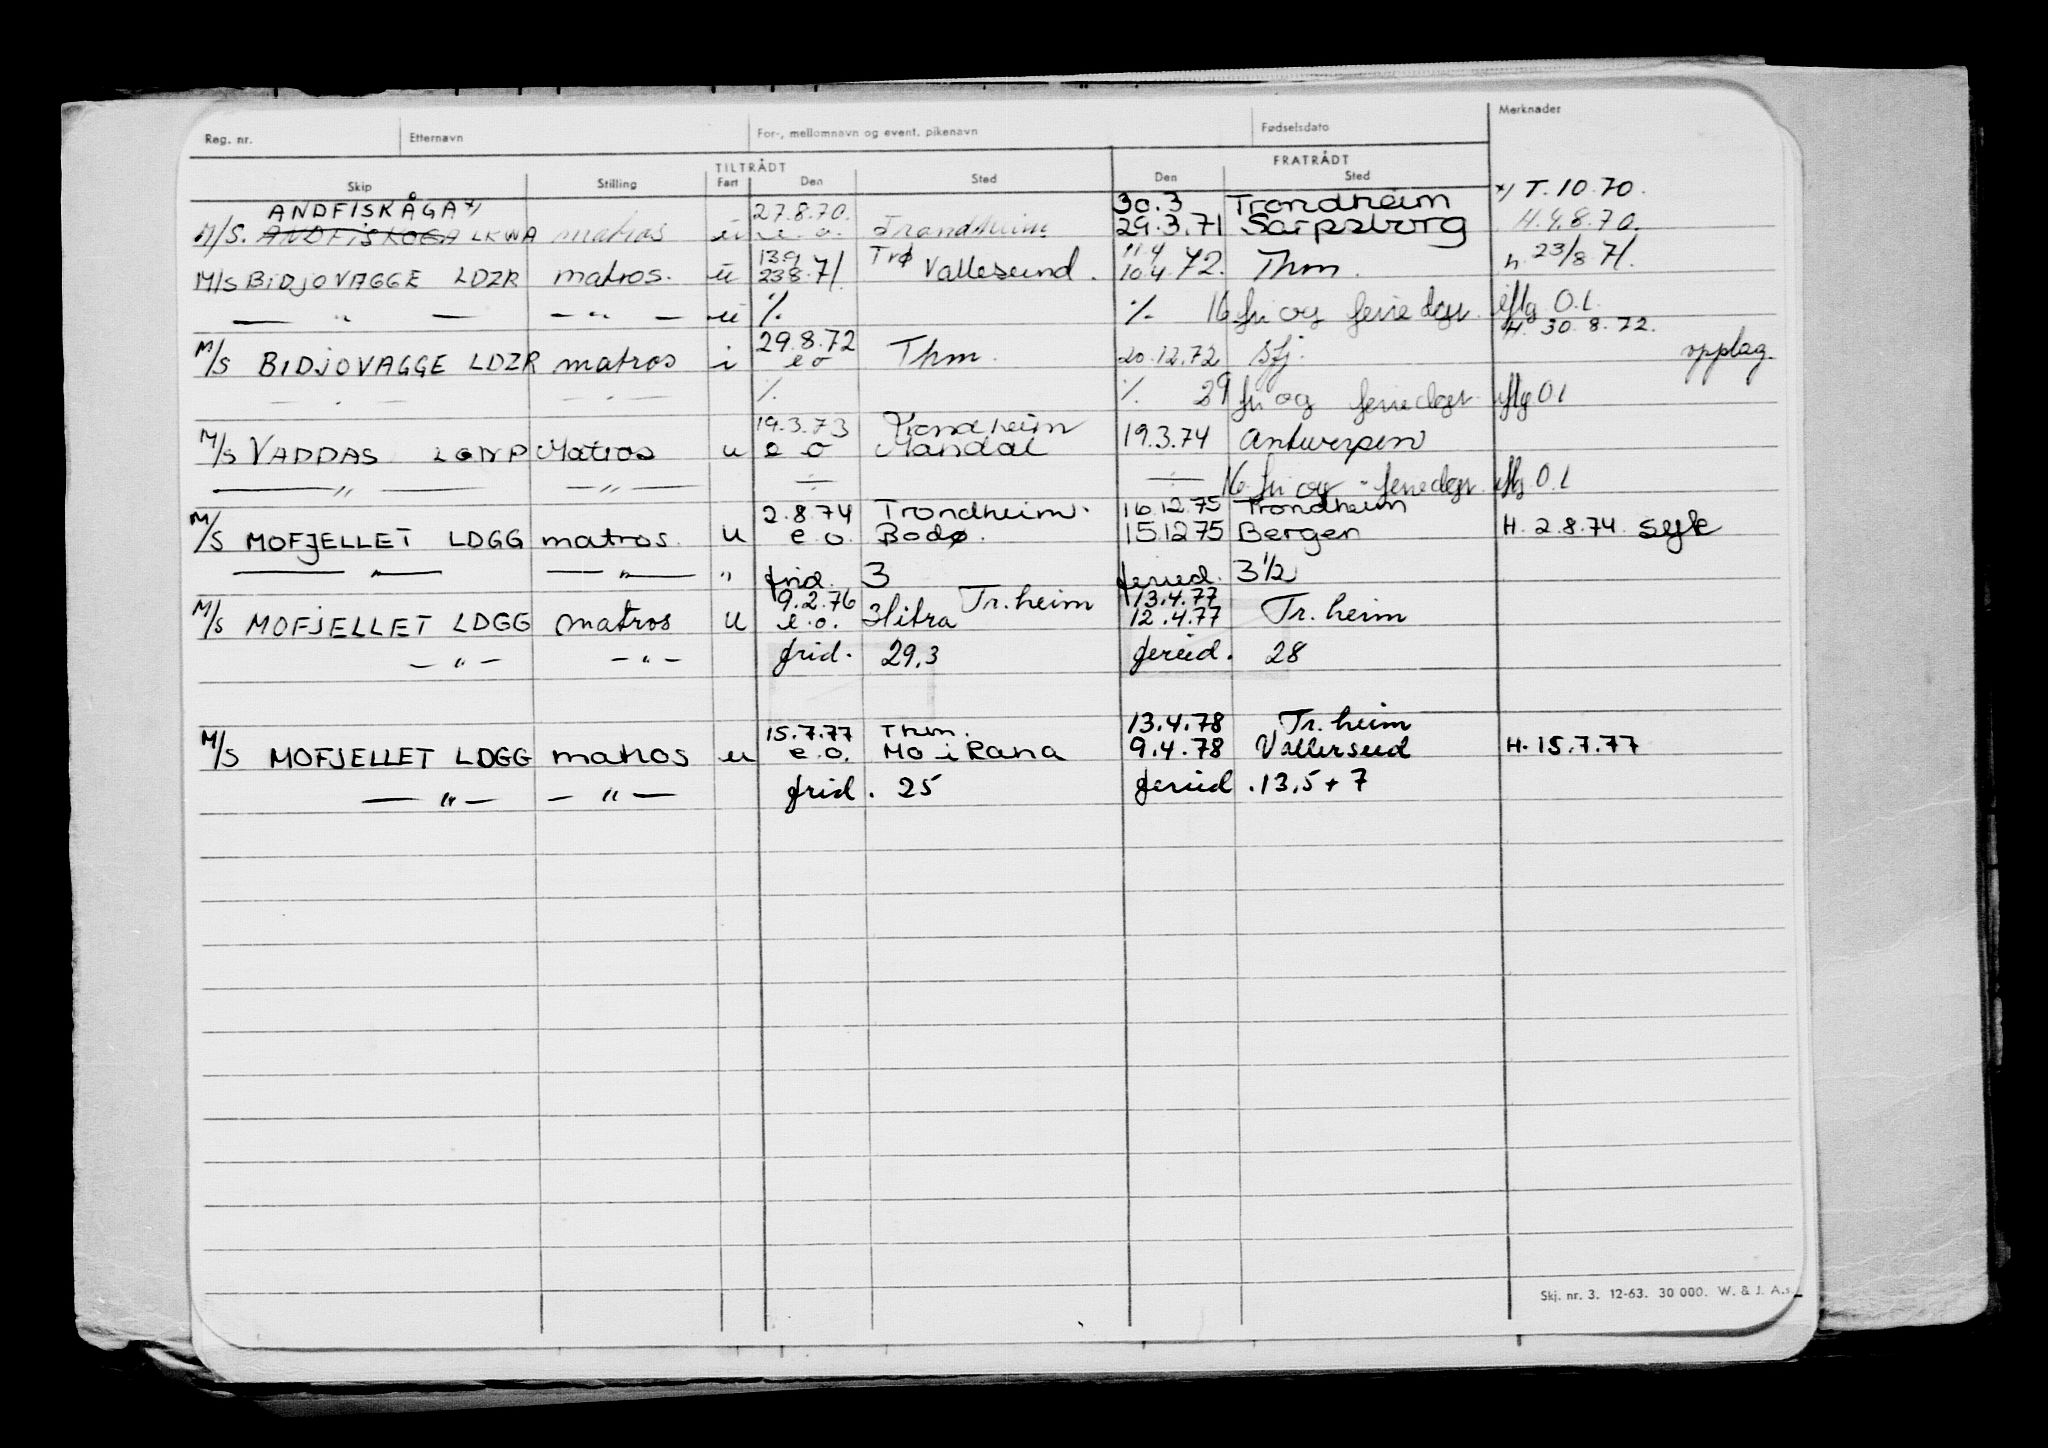 Reg. nr. Etternavn For-, mellomnavn og event. pikenavn Fødselsdato Merknader
TILTRÅDT FRATRÅDT
Skip Stilling Fart Den Sted Den Sted
ANDFISKÅGA x/ 27.8.70. 30.3 Trondheim x/ T.10.70.
M/S. ANDFISKOGA LKWA matros u e.o. Trondheim 29.3.71 Sarpsborg H.4.8.70.
13.9 Trø 11.4
M/S BIDJOVAGGE LDZR matros. u 23.8.71. Vallesund. 10.4.72. Thm. h. 23/8 71.
— " — — " — u % % 16 fri og feriedgr. iflg O.l.
29.8.72 H. 30.8.72.
M/S BIDJOVAGGE LDZR matros i e o Thm. 20.12.72 Sfj. opplag.
— " — — " — % % 29 fri og feriedgr. iflg O l
19.3.73 Trondheim
M/S VADDAS LGWP Matros u e o Mandal 19.3.74 Antwerpen
— " — — " — ÷ ÷ 16 fri og feriedgr. iflg O.l
2.8.74 Trondheim. 16.12.75 Trondheim
M/S MOFJELLET LDGG matros. u e.o. Bodø. 15.12 75 Bergen H. 2.8.74. syk
— " — — " — " frid. 3 feried. 3 1/2
9.2.76 Tr.heim 13.4.77
M/S MOFJELLET LDGG matros u e.o. Hitra 12.4.77 Tr.heim
— " — — " — frid. 29,3 feried. 28
15.7.77 Thm. 13.4.78 Tr.heim
M/S MOFJELLET LDGG matros u e.o. Mo i Rana 9.4.78 Vallersund H. 15.7.77
— " — — " — frid. 25 feried. 13,5 + 7
Skj. nr. 3. 12-63. 30 000. W. & J. A.s.